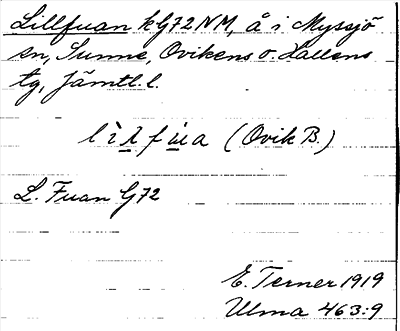 Lillfuan k G72 NM, å i Myssjö
sn, Sunne, Ovikens o. Hallens
tg, Jämtl. l.
lìlfu̇a (Ovik B.)
L. Fuan G72
E. Terner 1919
Ulma 463:9